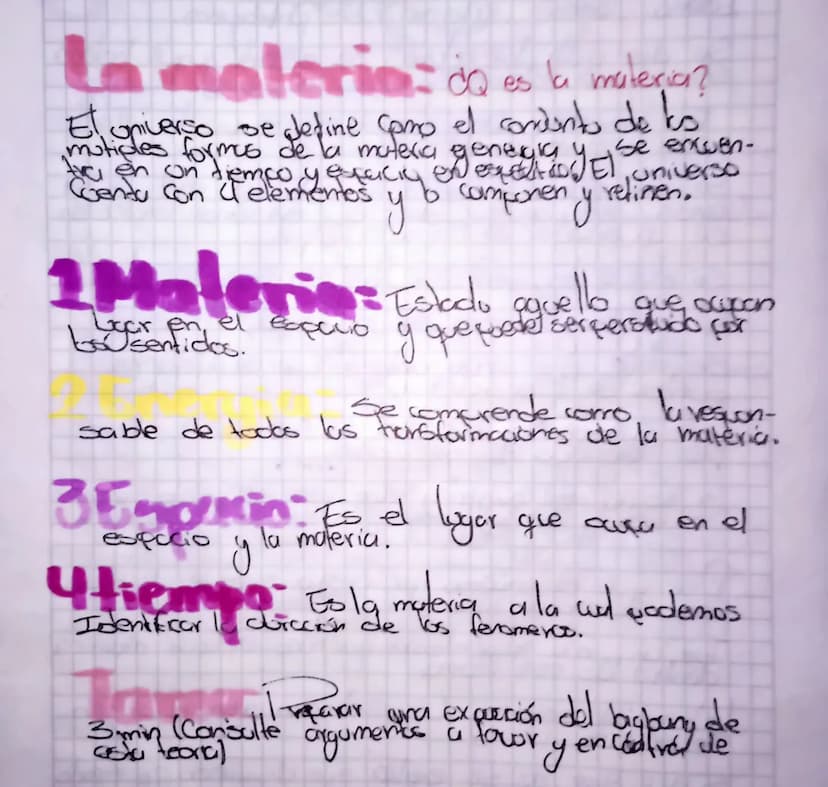 La materia: ¿Q es la materia?
El universo se define como el conjunto de los
multiples formas de la materia y energia y se encuen-
tra en un tiempo y espacio El universo
Cuenta con 4 elementos y lo componen y
1 Materia: Estado aquello que ocupan
lugar en el espacio y que puede ser por
los sentidos.
2 Energia: Se comprende como la respon-
sable de todas las transformaciones de la materia.
3 Espacio: Es el lugar que ocupa en el
espacio y la materia.
4 tiempo: Es la materia a la cual podemos
Identificar la duración de los fenomenos.
Tarea Preparar una exposición del bigbang de
3 min (Consulte argumentos a favor y en contra de
esta teoria)